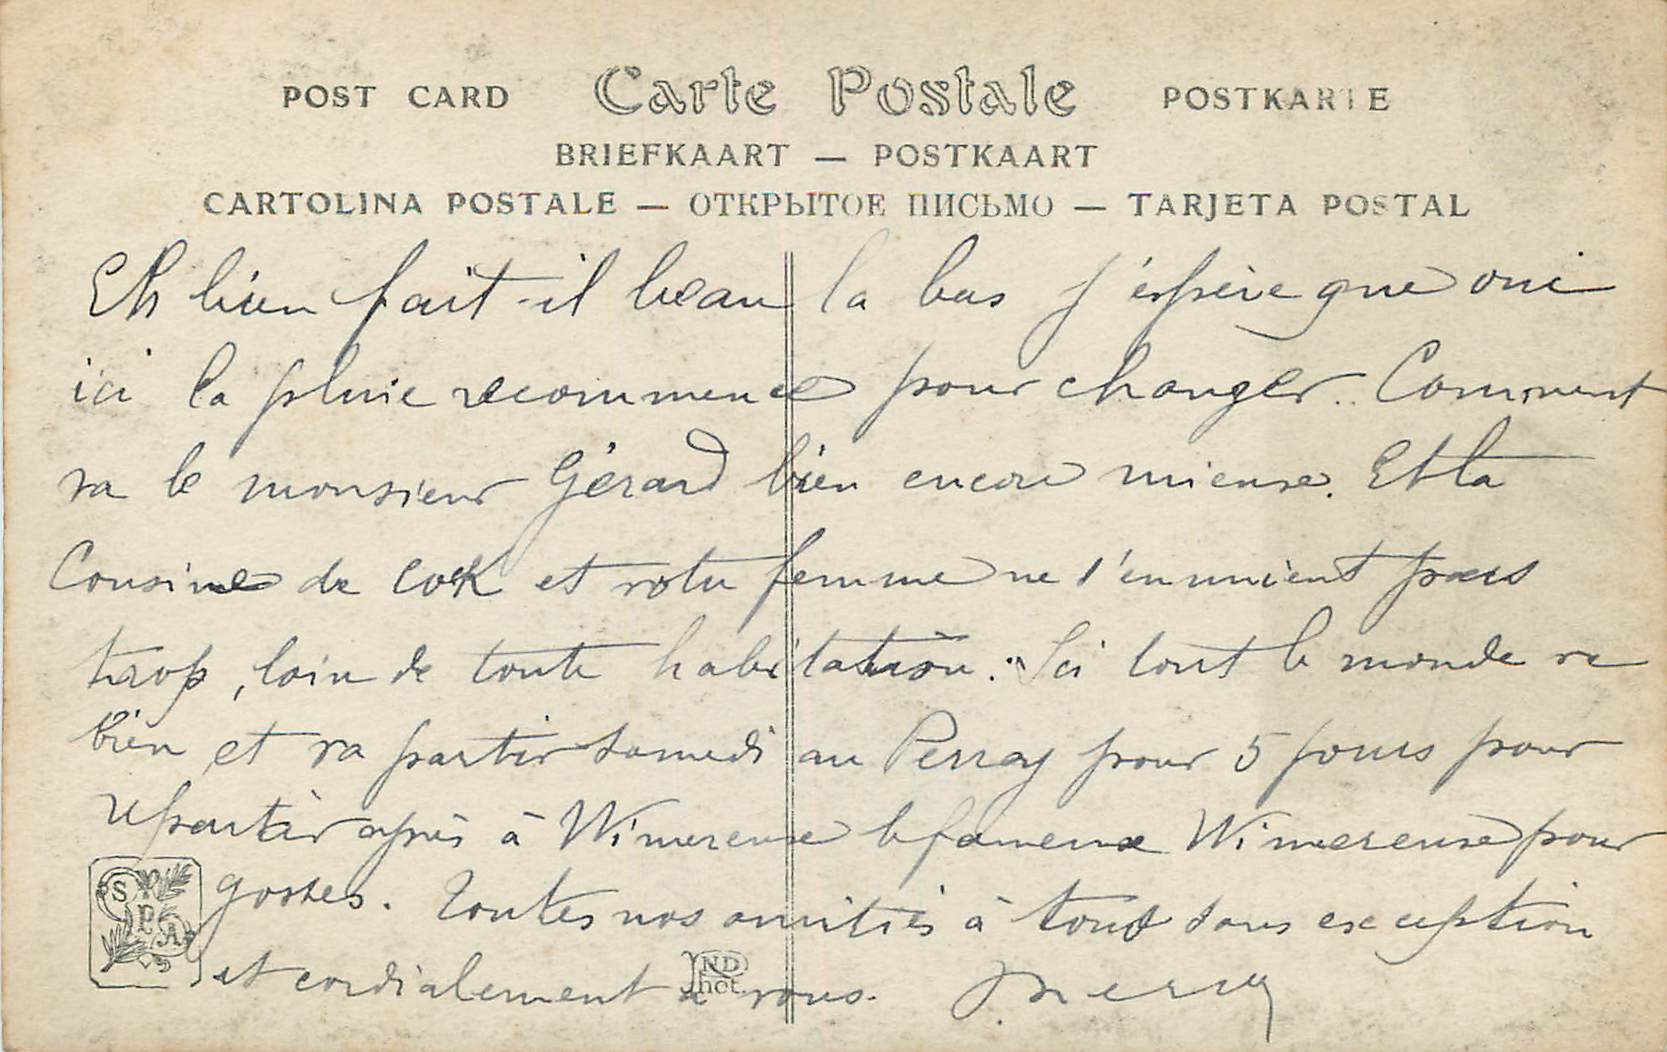 POST CARD Carte Postale POSTKARTE
BRIEFKAART — POSTKAART
CARTOLINA POSTALE — ОТКРЫТОЕ ПИСЬМО — TARJETA POSTAL
Eh bien fait-il beau la bas j'éspère que oui
ici la pluie recommence pour changer. Comment
va le monsieur Gérard bien encore mieux. Et la
Cousine de cok et votu femme ne s'ennuient pas
trop, loin de toute habitation. Ici tout le monde va
bien et va partir samedi au Perray pour 5 jours pour
repartir après à Wimereuse le fameux Wimereuse pour
gosses. Toutes nos amitiés à tous sans exception
SPA et cordialement à vous.
ND Phot.